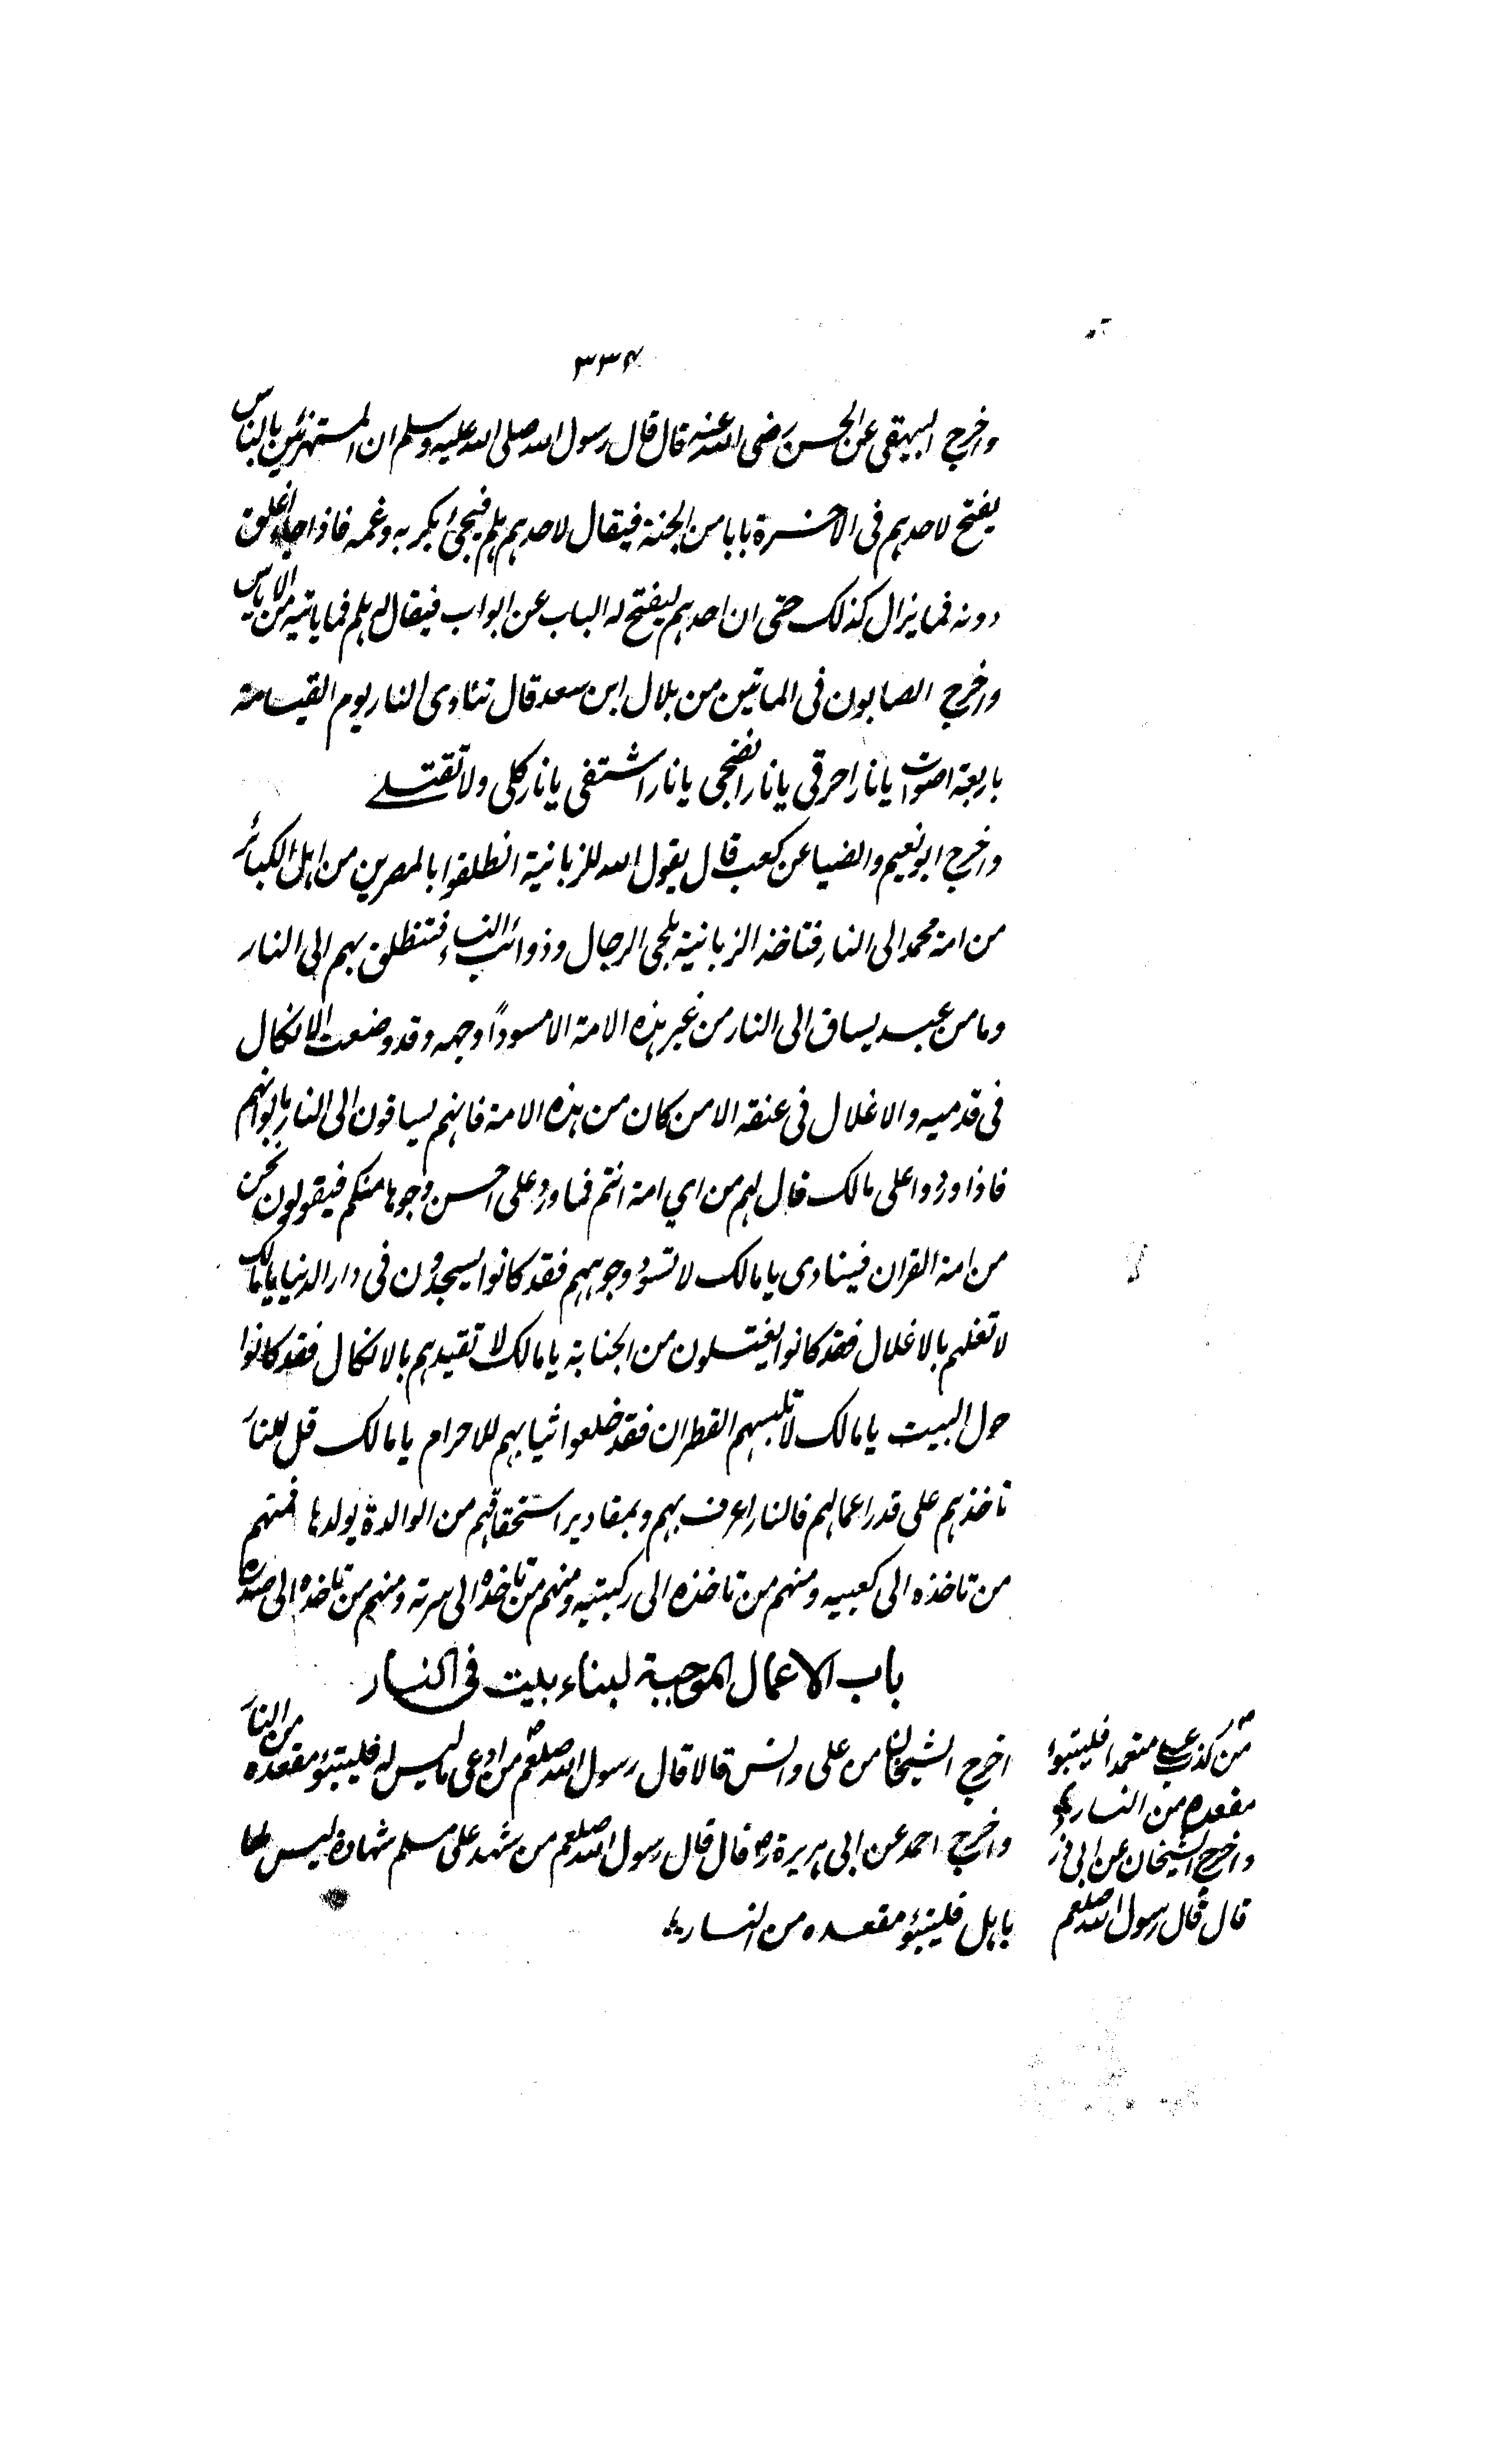 ٣٣٤
واخرج البيهقى عن الحسن رضى الله عنه قال قال رسول الله صلى الله عليه وسلم ان المستهزئين بالناس
يفتح لاحدهم فى الاخرة بابا من الجنة فيقال لاحدهم هلم فيجئ بكربه وغمه فاذا جاء اغلق
دونه فما يزال كذلك حتى ان احدهم ليفتح له الباب عن ابواب فيقال له هلم فما ياتيه من الاياس
واخرج الصابون فى الماتين من بلال ابن سعد قال تنادى النار يوم القيامة
باربعة اصوات يا نار احرقى يا نار انضجى يا نار اشتفى يا نار كلى ولا تقتلے
واخرج ابو نعيم والضيا عن كعب قال يقول الله للزبانية انطلقوا بالمصرين من اهل الكبائر
من امة محمد الى النار فتاخذ الزبانية بلحى الرجال وذوائب النساء فتنطلق بهم الى النار
وما من عبد يساق الى النار من غير هذه الامة الا مسودًا وجهه وقد وضعت الانكال
فى قدميه والاغلال فى عنقه الا من كان من هذه الامة فانهم يساقون الى النار بالوانهم
فاذا وردوا على مالك قال لهم من اي امة انتم فما ورد على احسن وجوها منكم فيقولون نحن
من امة القران فينادى يا مالك لا تسود وجوههم فقد كانوا يسجدون فى دار الدنيا يا مالك
لا تغلهم بالاغلال فقد كانوا يغتسلون من الجنابة يا مالك لا تقيدهم بالانكال فقد كانوا
حول البيت يا مالك لا تلبسهم القطران فقد خلعوا ثيابهم للاحرام يا مالك قل للنار
تاخذهم على قدر اعمالهم فالنار اعرف بهم وبمقادير استحقاقهم من الوالدة بولدها فمنهم
من تاخذه الى كعبيه ومنهم من تاخذه الى ركبتيه ومنهم من تاخذه الى سرته ومنهم من تاخذه الى صدره
باب الاعمال الموجبة لبناء بيت فى النار
اخرج الشيخان من على وانس قالا قال رسول الله صلعم من ادعى ما ليس له فليتبؤ مقعده من النار
واخرج احمد عن ابى هريرة رض قال قال رسول الله صلعم من شهد على مسلم شهادة ليس لها
باهل فليتبؤ مقعده من النار
من كذب على متعمدا فليتبوا
مقعده من النار
واخرج الشيخان عن ابى ذر
قال قال رسول الله صلعم